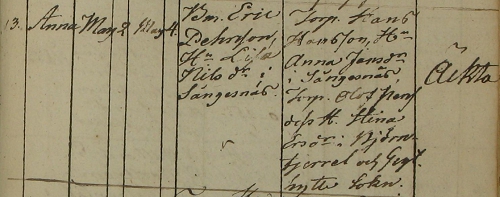 13. Anna May 2 May 4. Bm. Eric
Pehrsson,
Hu Lisa
Nils dr i
Sångesnäs.
Torp. Hans
Hansson, Hu
Anna Jansdr
i Sångesnäs,
Torp. Olof Pers
och H. Stina
Ersdr i Björn
fjerrel och Gryt
hytte Sokn.
Äckta